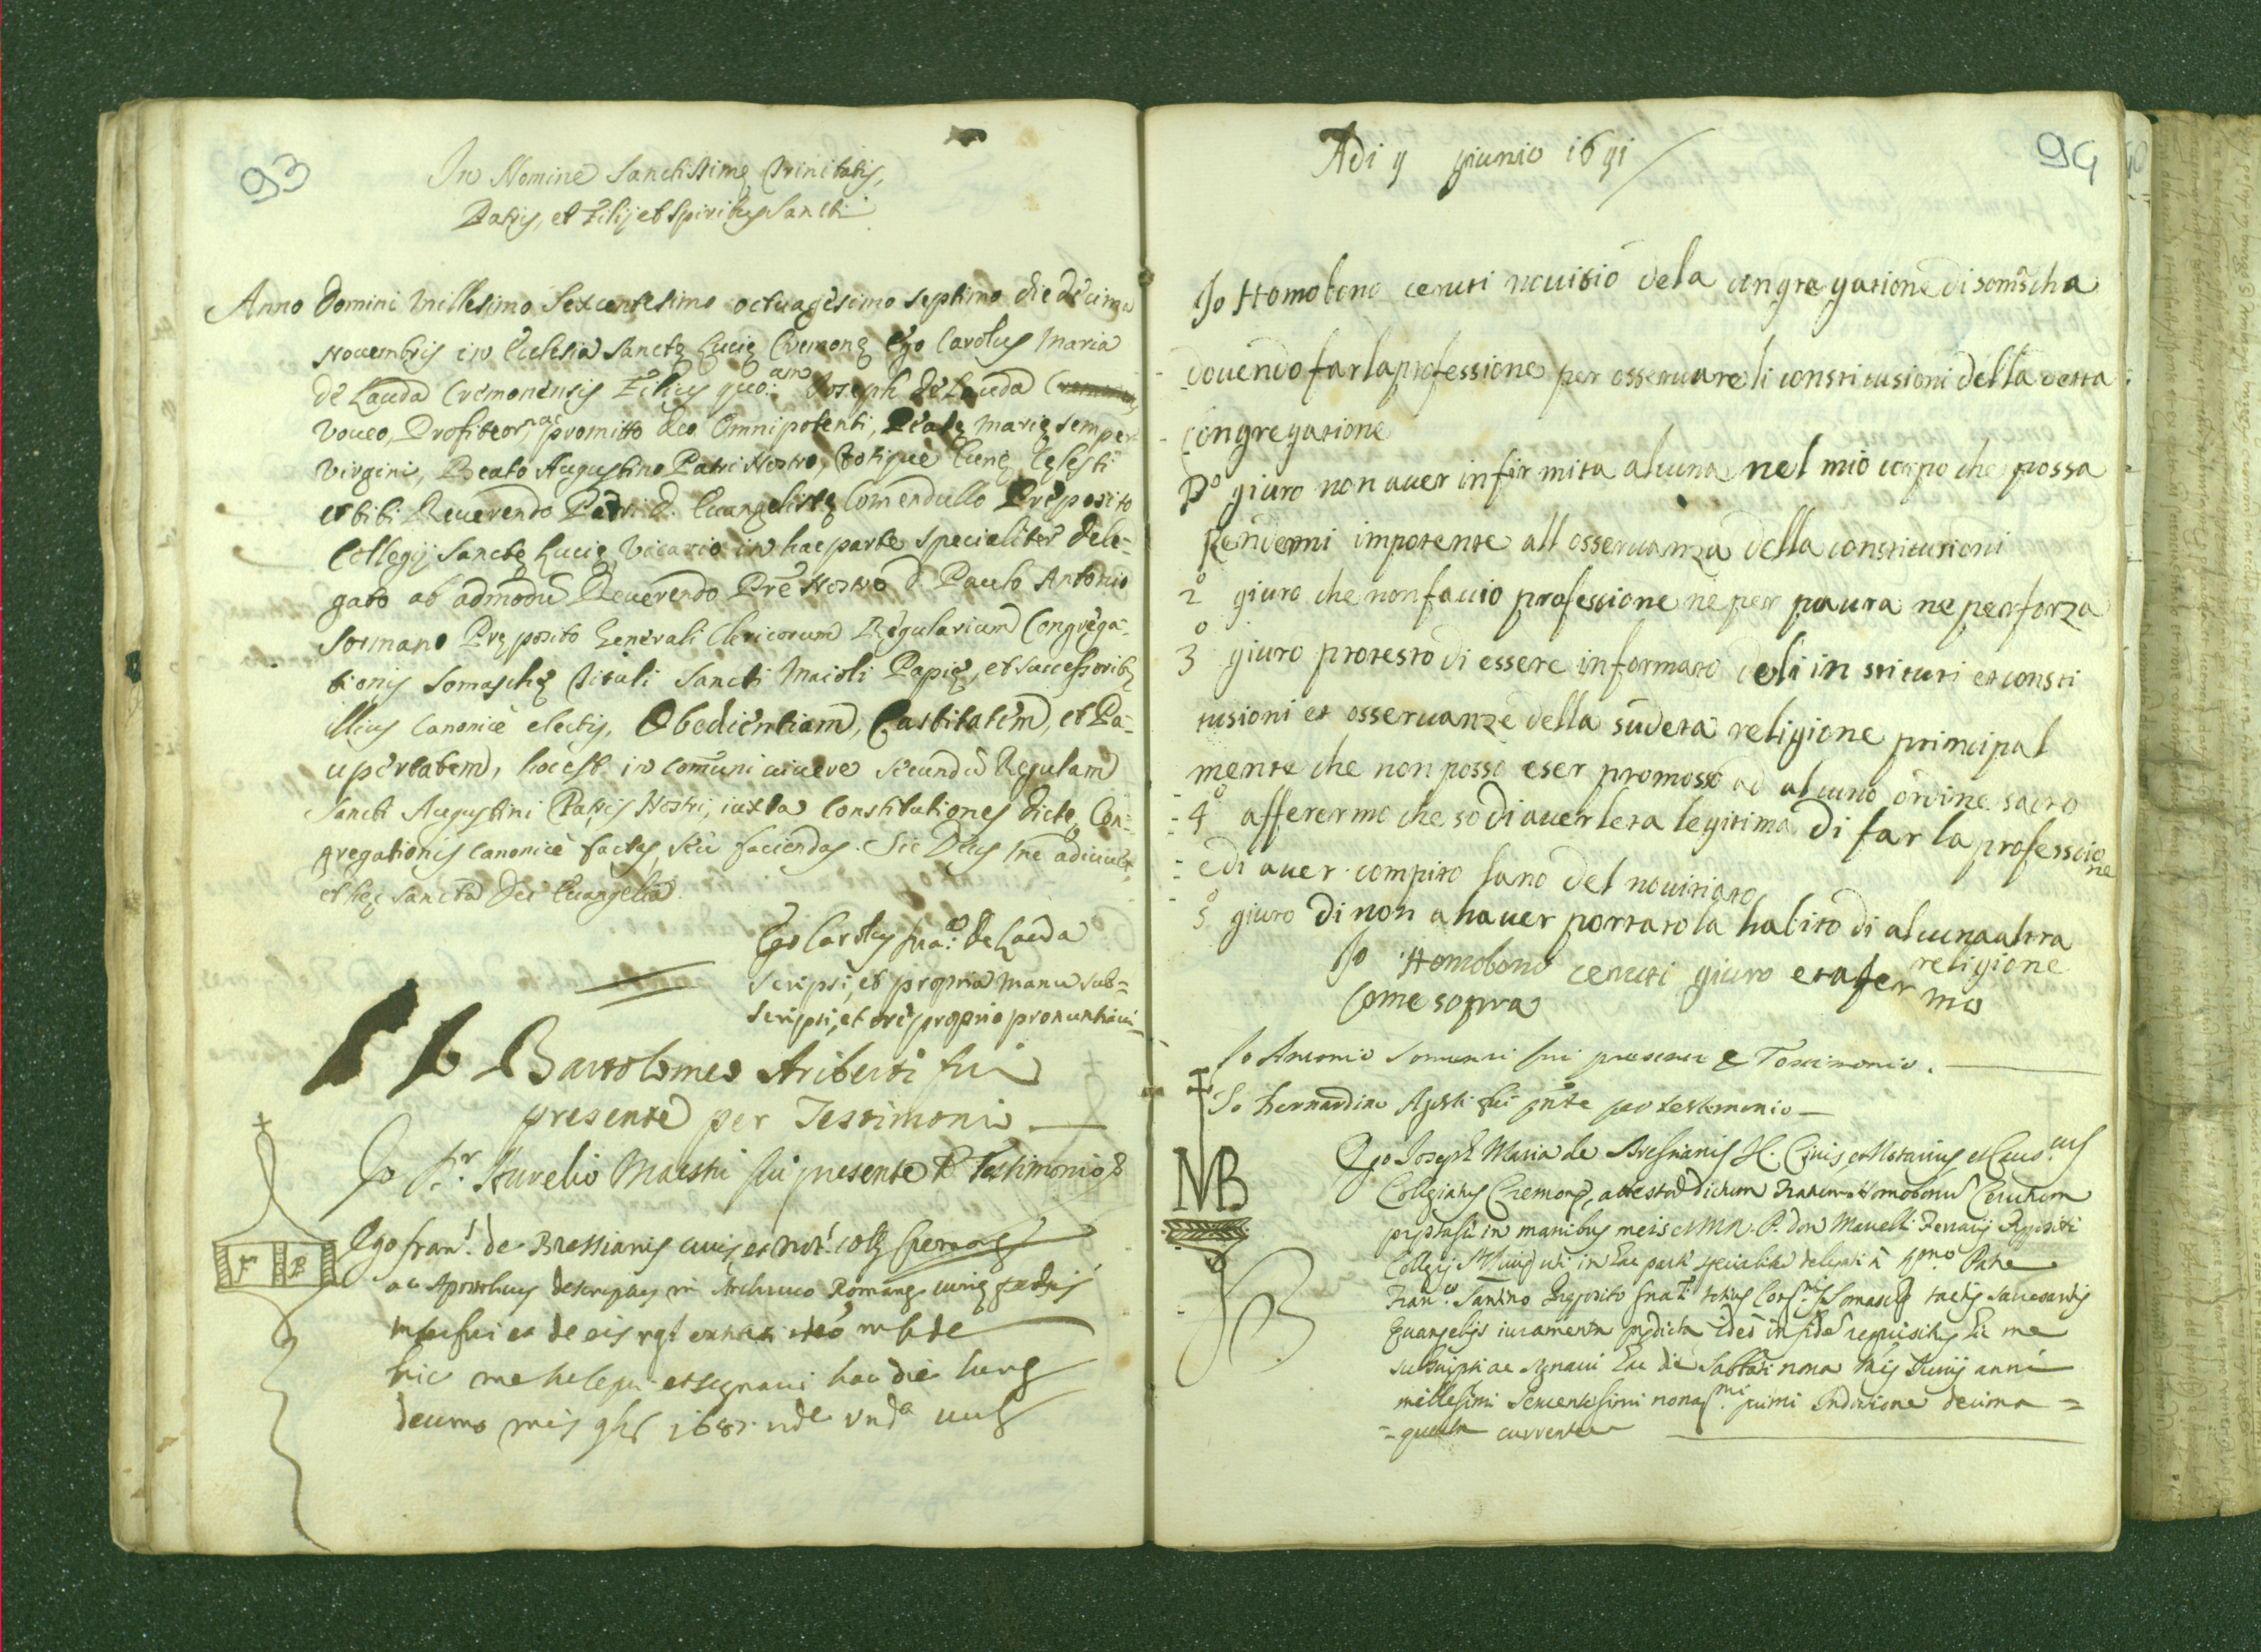 93
In Nomine Sanctissimę Trinitatis,
Patris, et Filij et Spiritus Sancti
Anno Domini Millesimo Sexcentesimo octuagesimo septimo die decima
Novembris in Ecclesia Sanctę Lucię Cremonę Ego Carolus Maria
de Lauda Cremonensis Filius quo:am Joseph de Lauda
Voveo, Profiteor, ac promitto Deo Omnipotenti, Beatę Marię semper
Virgini, Beato Augustino Patri Nostro, totique Curię Cęlesti
et tibi Reverendo Patri D. Euangelistę Comendullo Preposito
Collegij Sanctę Lucię Vicario in hac parte specialiter dele-
gato ab admodũ Reverendo Prẽ Nostro D. Paulo Antonio
Sormano Pręposito Generali Clericorum Regularium Congrega-
tionis Somaschę tituli Sancti Maioli Papię, et successoribꝫ
illius canonicè electis, Obedientiam, Castitatem, et Pa-
upertatem, hoc est in comuni vivere secundũ Regulam
Sancti Augustini Patris Nostri, iuxta Constitutiones dictę Con-
gregationis canonicè factas, seù faciendas. Sic Deus me adiuvet,
et hęc sancta Dei Euangelia.
Ego Carolus Ma:a de Lauda
scripsi, et propria manu sub=
scripsi, et ore proprio pronuntiavi
Io Bartolomeo Ariberti fui
presente per Testimonio
Io Aurelio Maestri fui presente P Testimonio
Ego Fran: de Bressianis civis et Not:
ac Apostolicus descriptus in Archivo Romanę Curię
interfui et de eis rogt
hic me et segnavi hac die lunę
decimo mẽs 9bris 1687
F B
94
Adi 9 giunio 1691
Io Homobono ceruti novitio dela congregatione di somascha
dovendo far la professione per osservare li constitusioni della detta
congregatione
Po giuro non aver infirmita alcuna nel mio corpo che possa
Rendermi impotente all osservanza della constitusioni
2o giuro che non faccio professione ne per paura ne per forza
3o giuro protesto di essere informato deli in stituti et consti
tusioni et osservanze della sudeta religione principal
mente che non posso eser promosso ad alcuno ordine sacro
4o affererme che so di aver leta legitima di far la professione
e di aver compito lano del novitiato
5o giuro di non a haver portato la habito di alcuna altra
religione
Io Homobono ceruti giuro et afer mo
come sopra
Io Antonio fui presente P Testimonio.
Io Bernardino fui pñte per testimonio
NB
Ego Joseph Maria de Bressianis Civis, et Notarius
Collegiatus Cremonę, attestor dictum Homobonũ Cerutum
in manibus meis P. Don
Collegij in hac parte specialiter delegati à Patre
Fran:co Santino Pręposito totius Somaschę tactis sacrosantis
Euangelijs iuramenta ideò in fidẽ requisitus hic me
subscripsi ac signavi hac die Sabbati nona Junij anni
millesimi sexcentesimi nonag:mi primi Indictione decima =
= quarta currente